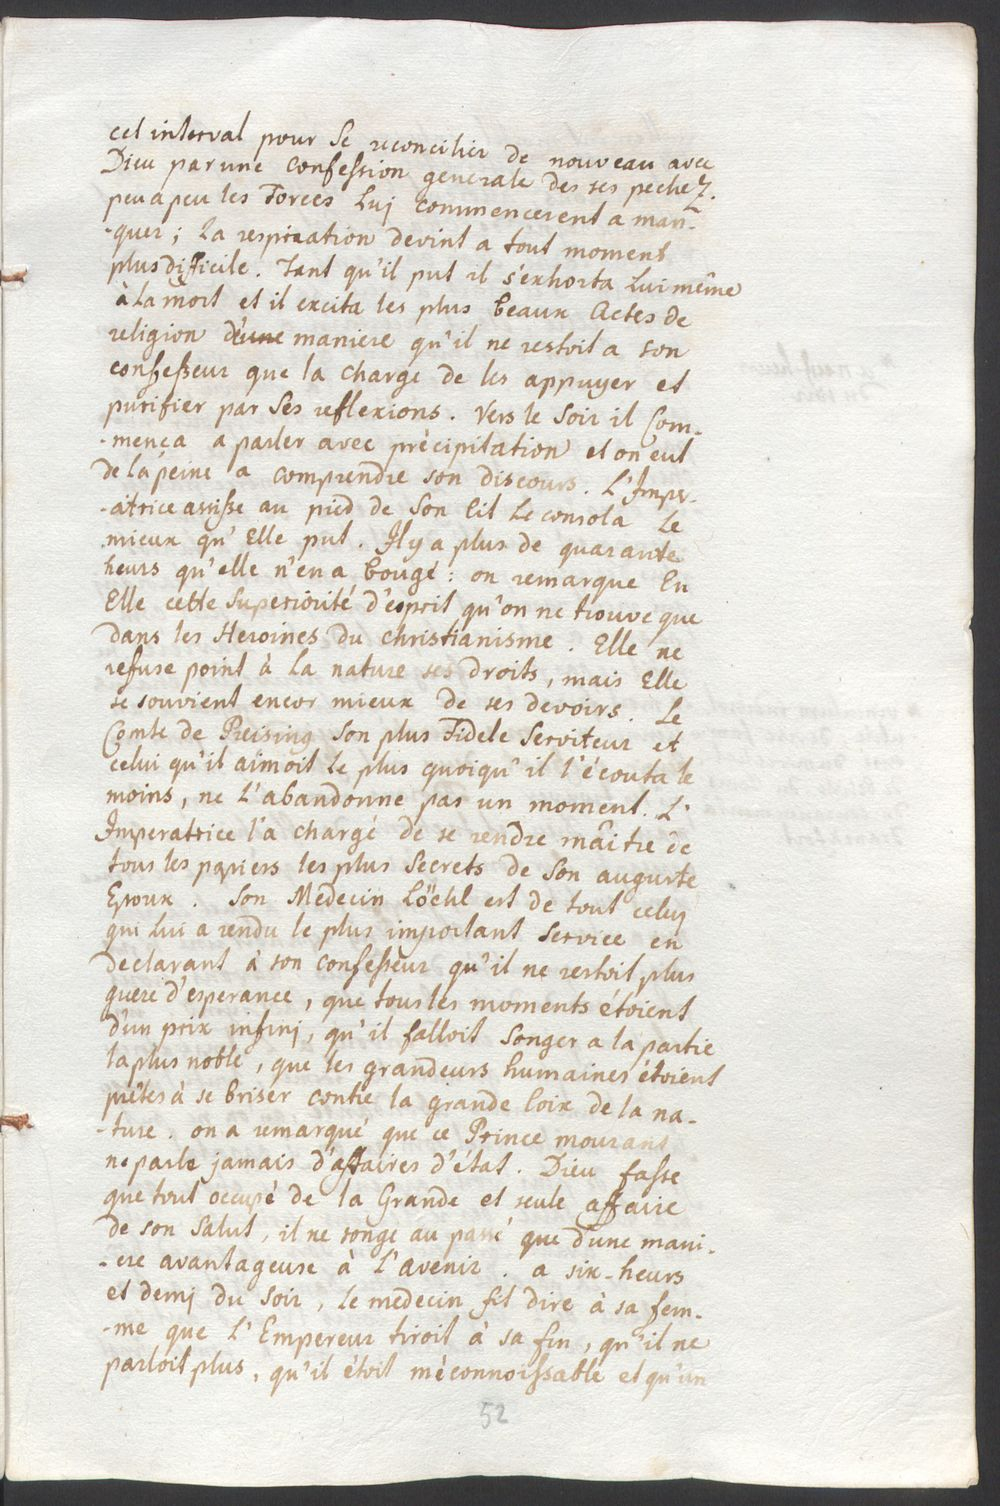 cet interval pour se reconcilier de nouveau avec
Dieu par une confession generale des ses pechez.
peu a peu les Forces Luj commencerent a man-
-quer ; La respiration devint a tout moment
plus difficile. Tant qu'il put il s'exhorta Lui même
à La mort et il excita les plus beaux Actes de
religion d'une maniere qu'il ne restoit a son
confesseur que la charge de les appuyer et
purifier par ses reflexions. Vers le soir il Com-
-mença a parler avec précipitation et on eut
de la peine a comprendre son discours. L'Imper-
-atrice assise au pied de son lit Le consola Le
mieux qu'Elle put. Il y a plus de quarante
heurs qu'elle n'en a bougé : on remarque En
Elle cette superiorité d'esprit qu'on ne trouve que
dans les Heroines du christianisme. Elle ne
refuse point à la nature ses droits, mais Elle
se souvient encor mieux de ses devoirs. Le
Comte de Preising son plus Fidele serviteur et
celui qu'il aimoit le plus quoiqu'il l'écouta le
moins, ne L'abandonne pas un moment. L'
Imperatrice l'a chargé de se rendre mâitre de
tous les papiers les plus secrets de son auguste
Epoux. Son Medecin Löchl est de tout celuj
qui Lui a rendu le plus important service en
declarant à son confesseur qu'il ne restoit plus
guere d'esperance, que tous les moments étoient
d'un prix infinj, qu'il falloit songer a la partie
la plus noble, que les grandeurs humaines étoient
prêtes à se briser contre la grande loix de la na-
-ture. on a remarqué que ce Prince mourant
ne parle jamais d'affaires d'état. Dieu fasse
que tout occupé de la Grande et seule affaire
de son salut, il ne songe au passé que d'une mani-
-ere avantageuse à L'avenir. a six-heurs
et demj du soir, le medecin fit dire à sa fem-
-me que L'Empereur tiroit à sa fin, qu'il ne
parloit plus, qu'il étoit méconnoissable et qu'un
52